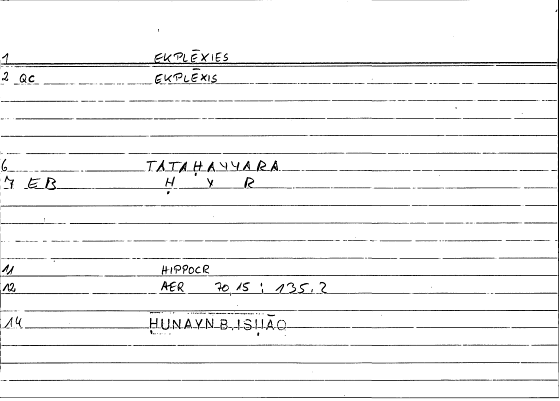 1 EKPLĒXIES
2 QC EKPLĒXIS
6 TATAḤAYYARA
7 EB Ḥ Y R
11 HIPPOCR
12 AER 70,15 : 135.2
14 ḤUNAYN B. ISḤĀQ